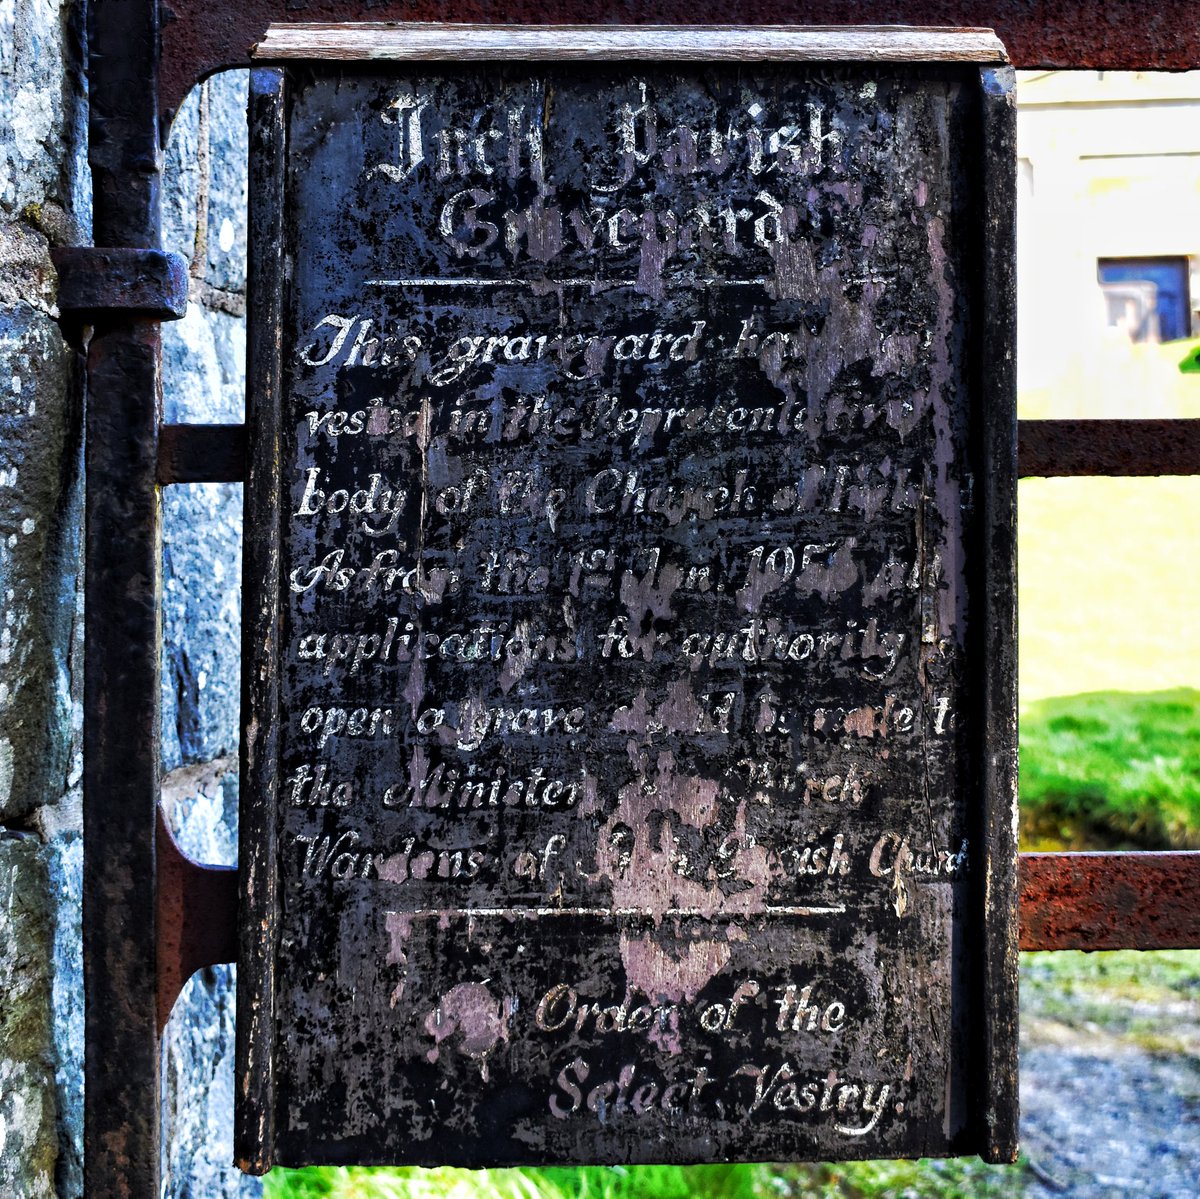 Inch Parish
Graveyard
This graveyard has
vested in the Representative
body of the Church of Ireland
As from the 1st Jan. all
applications for authority
open a grave should be made to
the Minister Church
Wardens of Inch Parish Church
Order of the
Select Vestry.